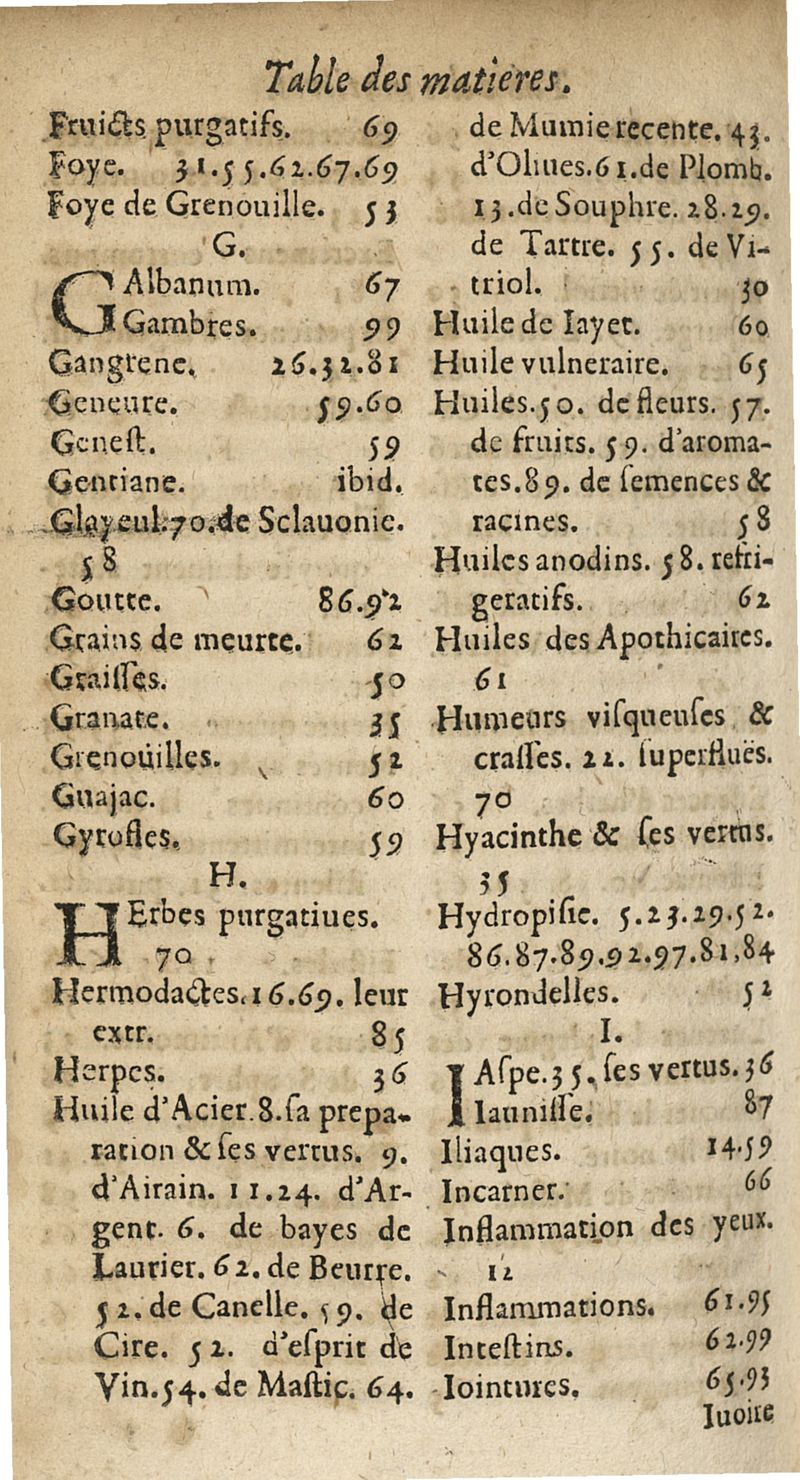 Table des matieres.
Fruicts purgatifs. 69
Foye. 31.55.62.67.69
Foye de Grenouille. 53
G.
GAlbanum. 67
Gambres. 99
Gangrene. 26.32.81
Geneure. 59.60
Geneſt. 59
Gentiane. ibid.
Glayeul.70.de Sclauonie.
58
Goutte. 86.92
Grains de meurte. 62
Graiſſes. 50
Granate. 35
Grenoüilles. 52
Guajac. 60
Gyrofles. 59
H.
HErbes purgatiues.
70
Hermodactes.16.69. leur
extr. 85
Herpes. 36
Huile d'Acier.8.ſa prepa-
ration & ſes vertus. 9.
d'Airain. 11.24. d'Ar-
gent. 6. de bayes de
Laurier. 62. de Beurre.
52. de Canelle. 59. de
Cire. 52. d'eſprit de
Vin.54. de Maſtic. 64.
de Mumie recente. 43.
d'Oliues.61.de Plomb.
13.de Souphre. 28.29.
de Tartre. 55. de Vi-
triol. 30
Huile de Iayet. 60
Huile vulneraire. 65
Huiles.50. de fleurs. 57.
de fruits. 59. d'aroma-
tes.89. de ſemences &
racines. 58
Huiles anodins. 58. refri-
geratifs. 62
Huiles des Apothicaires.
61
Humeurs viſqueuſes &
craſſes. 22. ſuperfluës.
70
Hyacinthe & ſes vertus.
35
Hydropiſie. 5.23.29.52.
86.87.89.92.97.81,84
Hyrondelles. 52
I.
IAſpe.35. ſes vertus.36
Iauniſſe. 87
Iliaques. 14.59
Incarner. 66
Inflammation des yeux.
12
Inflammations. 61.95
Inteſtins. 62.99
Iointures. 65.93
Iuoire